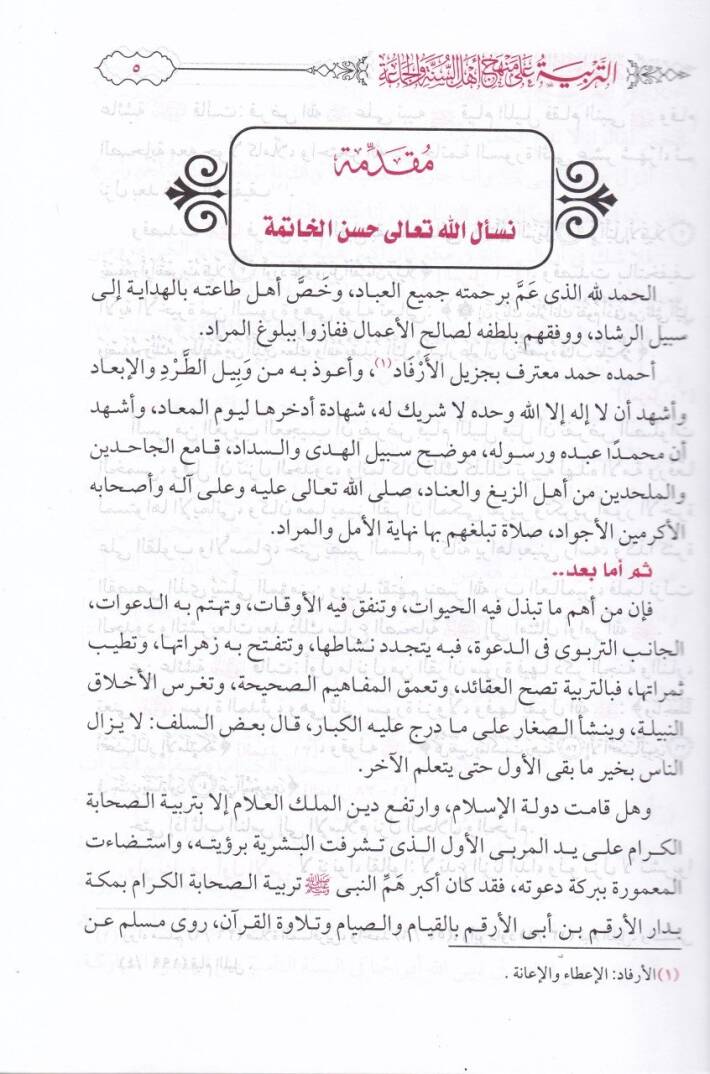 التربية على منهج أهل السنة والجماعة
٥
مُقَدِّمَة
نسأل الله تعالى حسن الخاتمة
الحمد لله الذى عَمَّ برحمته جميع العباد، وخَصَّ أهل طاعته بالهداية إلى
سبيل الرشاد، ووفقهم بلطفه لصالح الأعمال ففازوا ببلوغ المراد.
أحمده حمد معترف بجزيل الأَرْفَاد(١)، وأعوذ به من وَبِيل الطَّرْدِ والإبعاد
وأشهد أن لا إله إلا الله وحده لا شريك له، شهادة أدخرها ليوم المعاد، وأشهد
أن محمدًا عبده ورسوله، موضح سبيل الهدى والسداد، قامع الجاحدين
والملحدين من أهل الزيغ والعناد، صلى الله تعالى عليه وعلى آله وأصحابه
الأكرمين الأجواد، صلاة تبلغهم بها نهاية الأمل والمراد.
ثم أما بعد..
فإن من أهم ما تبذل فيه الحيوات، وتنفق فيه الأوقات، وتهتم به الدعوات،
الجانب التربوى فى الدعوة، فبه يتجدد نشاطها، وتتفتح به زهراتها، وتطيب
ثمراتها، فبالتربية تصح العقائد، وتعمق المفاهيم الصحيحة، وتغرس الأخلاق
النبيلة، وينشأ الصغار على ما درج عليه الكبار، قال بعض السلف: لا يزال
الناس بخير ما بقى الأول حتى يتعلم الآخر.
وهل قامت دولة الإسلام، وارتفع دين الملك العلام إلا بتربية الصحابة
الكرام على يد المربى الأول الذى تشرفت البشرية برؤيته، واستضاءت
المعمورة ببركة دعوته، فقد كان أكبر هَمِّ النبى ﷺ تربية الصحابة الكرام بمكة
بدار الأرقم بن أبى الأرقم بالقيام والصيام وتلاوة القرآن، روى مسلم عن
(١) الأرفاد: الإعطاء والإعانة .